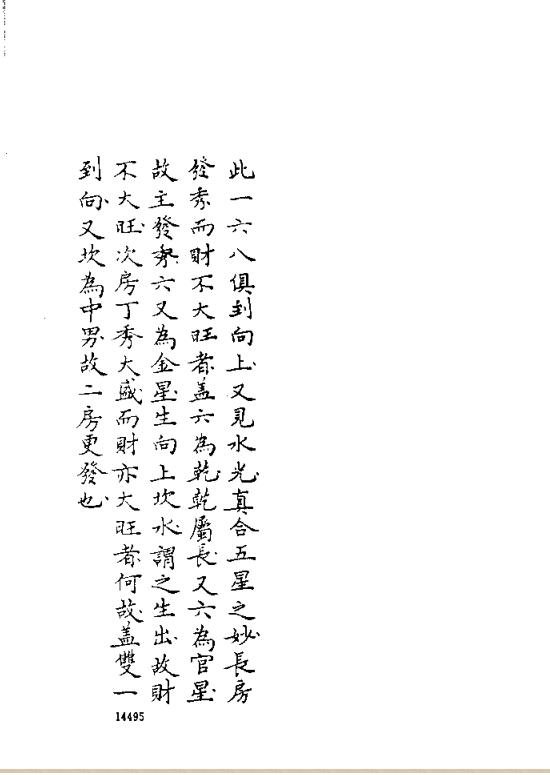 此一六八俱到向上又見水光真合五星之妙長房
發秀而財不大旺者盖六為乾乾屬長又六為官星
故主發秀六又為金星生向上坎水謂之生出故財
不大旺次房丁秀大盛而財亦大旺者何故盖雙一
到向又坎為中男故二房更發也
14495